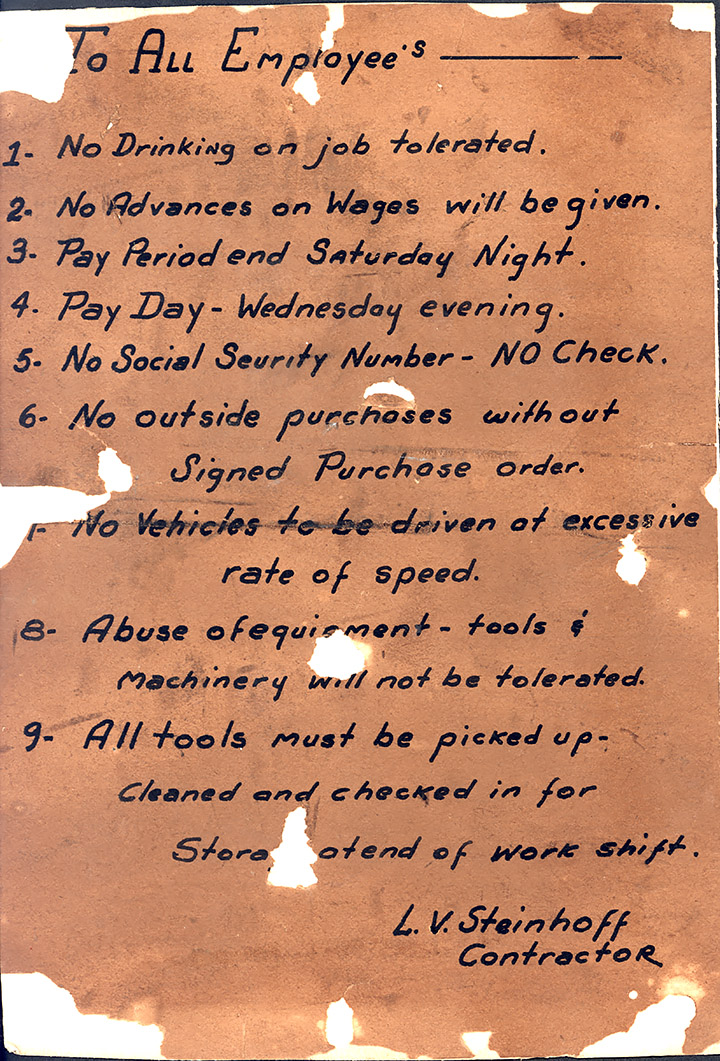 To All Employee's
1- No Drinking on job tolerated.
2- No Advances on Wages will be given.
3- Pay Period end Saturday Night.
4- Pay Day - Wednesday evening.
5- No Social Seurity Number - NO Check.
6- No outside purchases without
Signed Purchase order.
No Vehicles to be driven at excessive
rate of speed.
8- Abuse of equipment - tools &
Machinery will not be tolerated.
9- All tools must be picked up-
Cleaned and checked in for
at end of work shift.
L.V. Steinhoff
Contractor